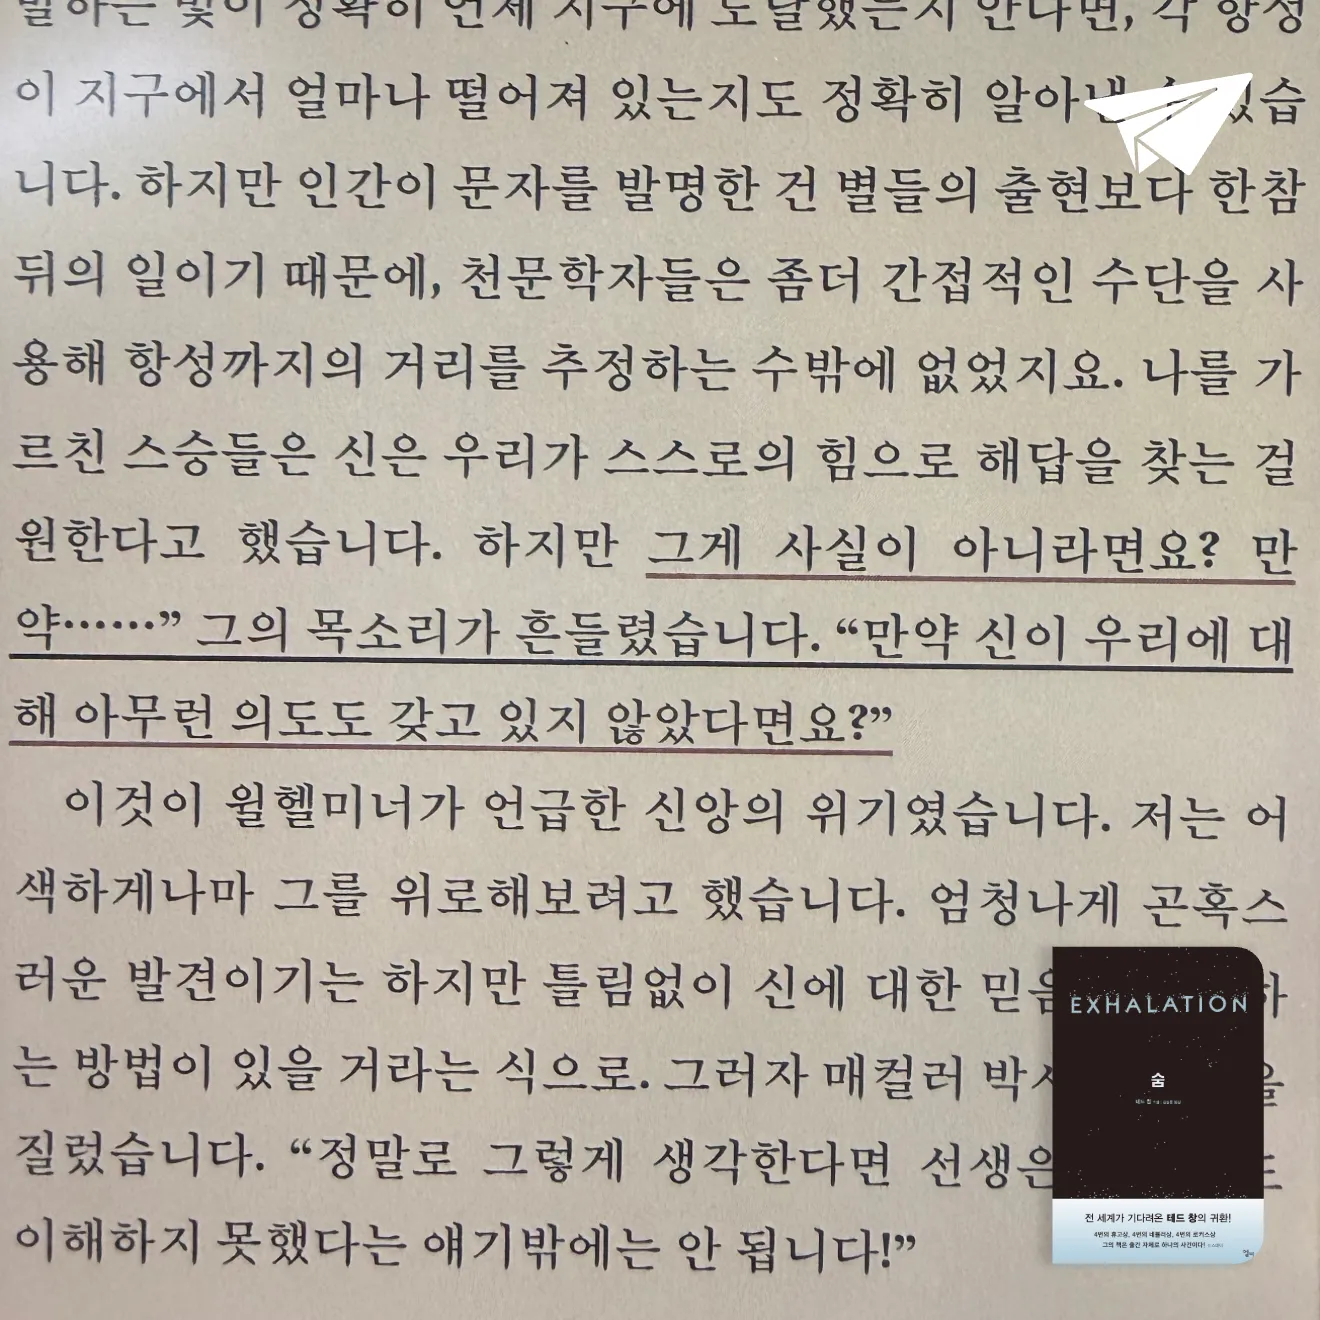 발하는 빛이 정확히 언제 지구에 도달했는지 안다면, 각 항성
이 지구에서 얼마나 떨어져 있는지도 정확히 알아낼 수 있습
니다. 하지만 인간이 문자를 발명한 건 별들의 출현보다 한참
뒤의 일이기 때문에, 천문학자들은 좀더 간접적인 수단을 사
용해 항성까지의 거리를 추정하는 수밖에 없었지요. 나를 가
르친 스승들은 신은 우리가 스스로의 힘으로 해답을 찾는 걸
원한다고 했습니다. 하지만 그게 사실이 아니라면요? 만
약……” 그의 목소리가 흔들렸습니다. “만약 신이 우리에 대
해 아무런 의도도 갖고 있지 않았다면요?”
이것이 윌헬미너가 언급한 신앙의 위기였습니다. 저는 어
색하게나마 그를 위로해보려고 했습니다. 엄청나게 곤혹스
러운 발견이기는 하지만 틀림없이 신에 대한 믿음
는 방법이 있을 거라는 식으로. 그러자 매컬러 박사
질렀습니다. “정말로 그렇게 생각한다면 선생은
이해하지 못했다는 얘기밖에는 안 됩니다!”
EXHALATION
숨
테드 창
전 세계가 기다려온 테드 창의 귀환!
4번의 휴고상, 4번의 네뷸러상, 4번의 로커스상
그의 책은 출간 자체로 하나의 사건이다!